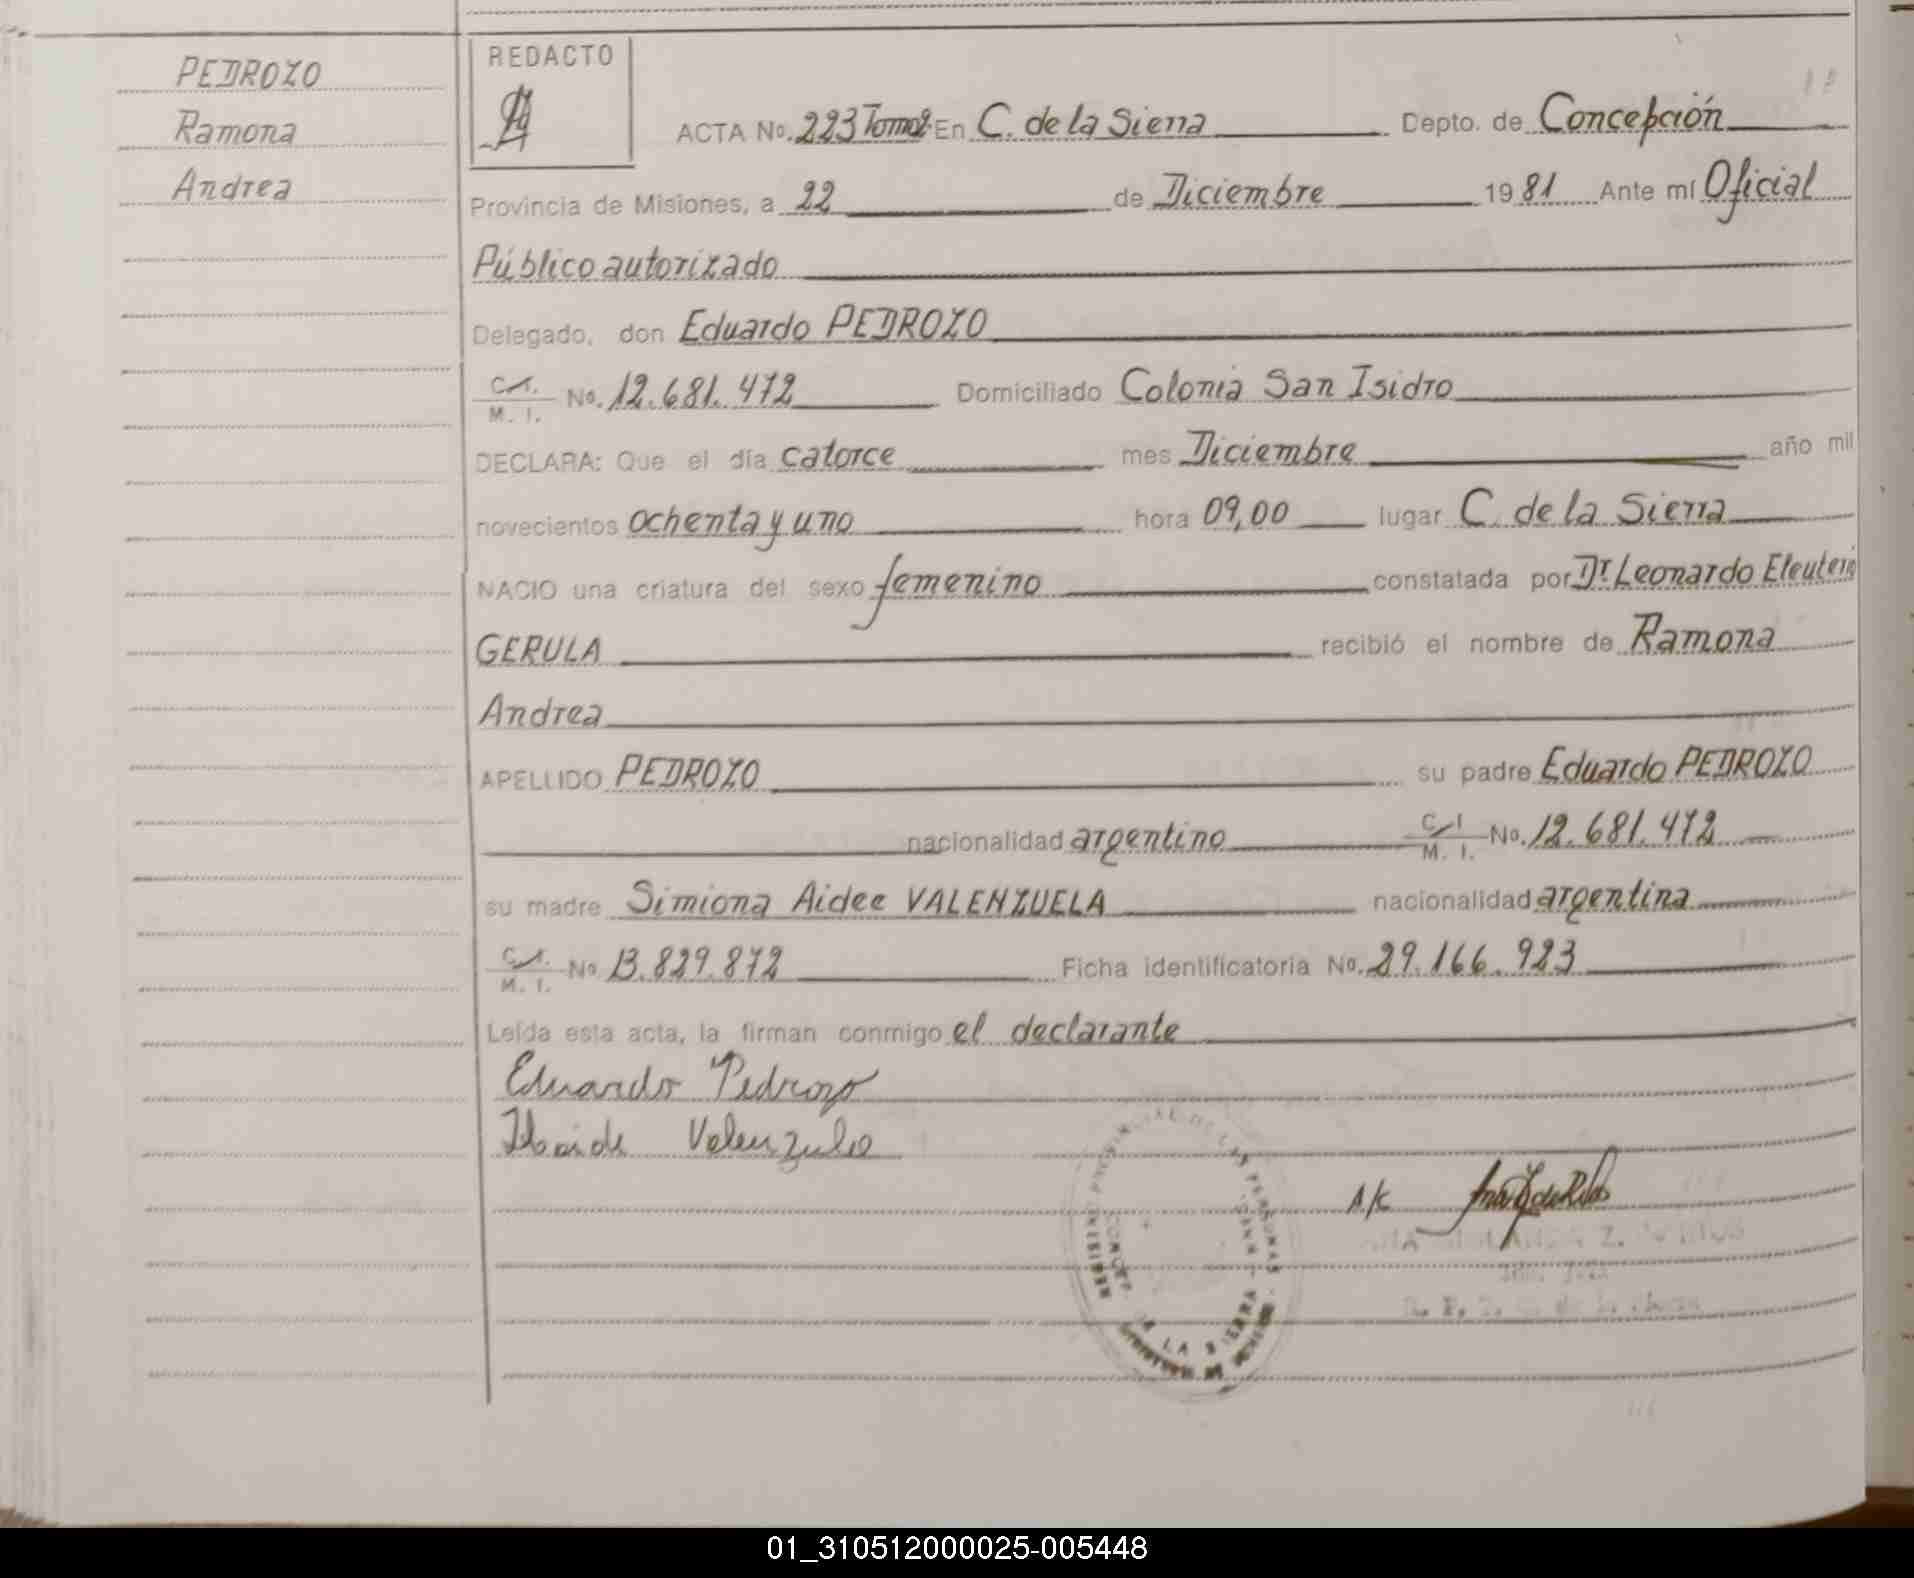 PEDROZO
Ramona
Andrea
REDACTO
ACTA No. 223 Tomo 2º En C. de la Sierra Depto. de Concepción
Provincia de Misiones, a 22 de Diciembre 1981 Ante mí Oficial
Público autorizado
Delegado, don Eduardo PEDROZO
C.I. M. I. No. 12.681.472 Domiciliado Colonia San Isidro
DECLARA: Que el día catorce mes Diciembre año mil
novecientos ochenta y uno hora 09,00 lugar C. de la Sierra
NACIO una criatura del sexo femenino constatada por Dr. Leonardo Eleuterio
GERULA recibió el nombre de Ramona
Andrea
APELLIDO PEDROZO su padre Eduardo PEDROZO
nacionalidad argentino C.I. M. I. No. 12.681.472
su madre Simiona Aidee VALENZUELA nacionalidad argentina
C.I. M. I. No. 13.829.872 Ficha identificatoria No. 29.166.923
Leída esta acta, la firman conmigo el declarante
Eduardo Pedrozo
Valenzuela
A/C
DE LAS PERSONAS
LA SIERRA
01_310512000025-005448